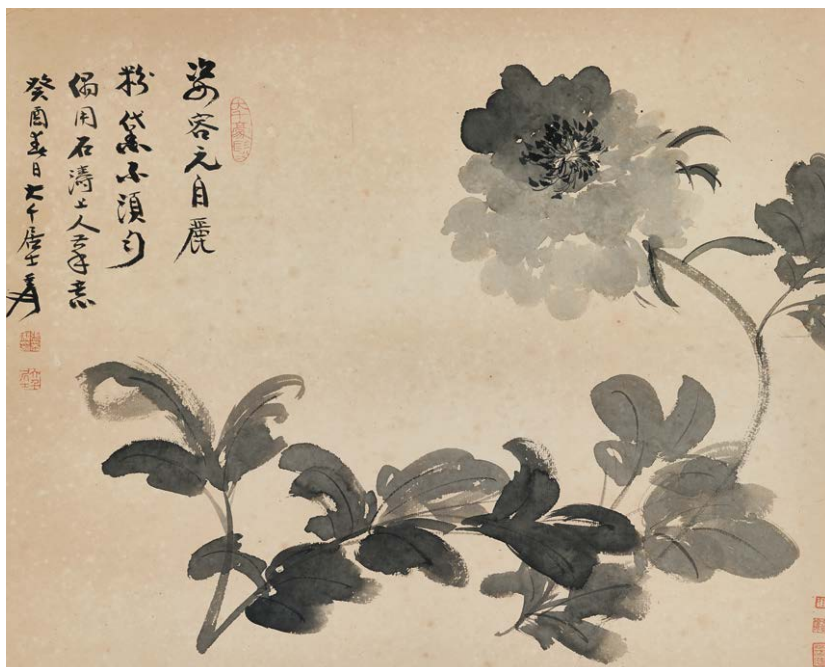 姿容元自麗
粉黛不須勻
偶用石濤上人筆意
癸酉春日大千居士爰